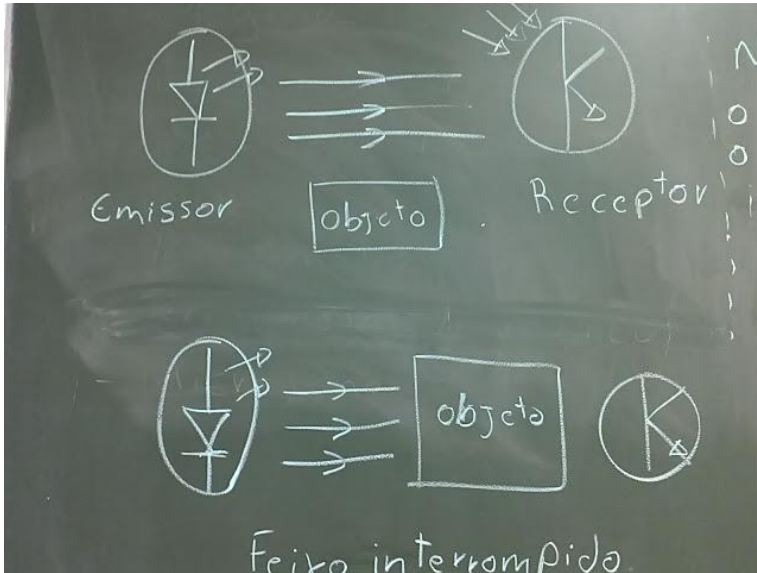 Emissor
objeto
Receptor
objeto
Feixo interrompido